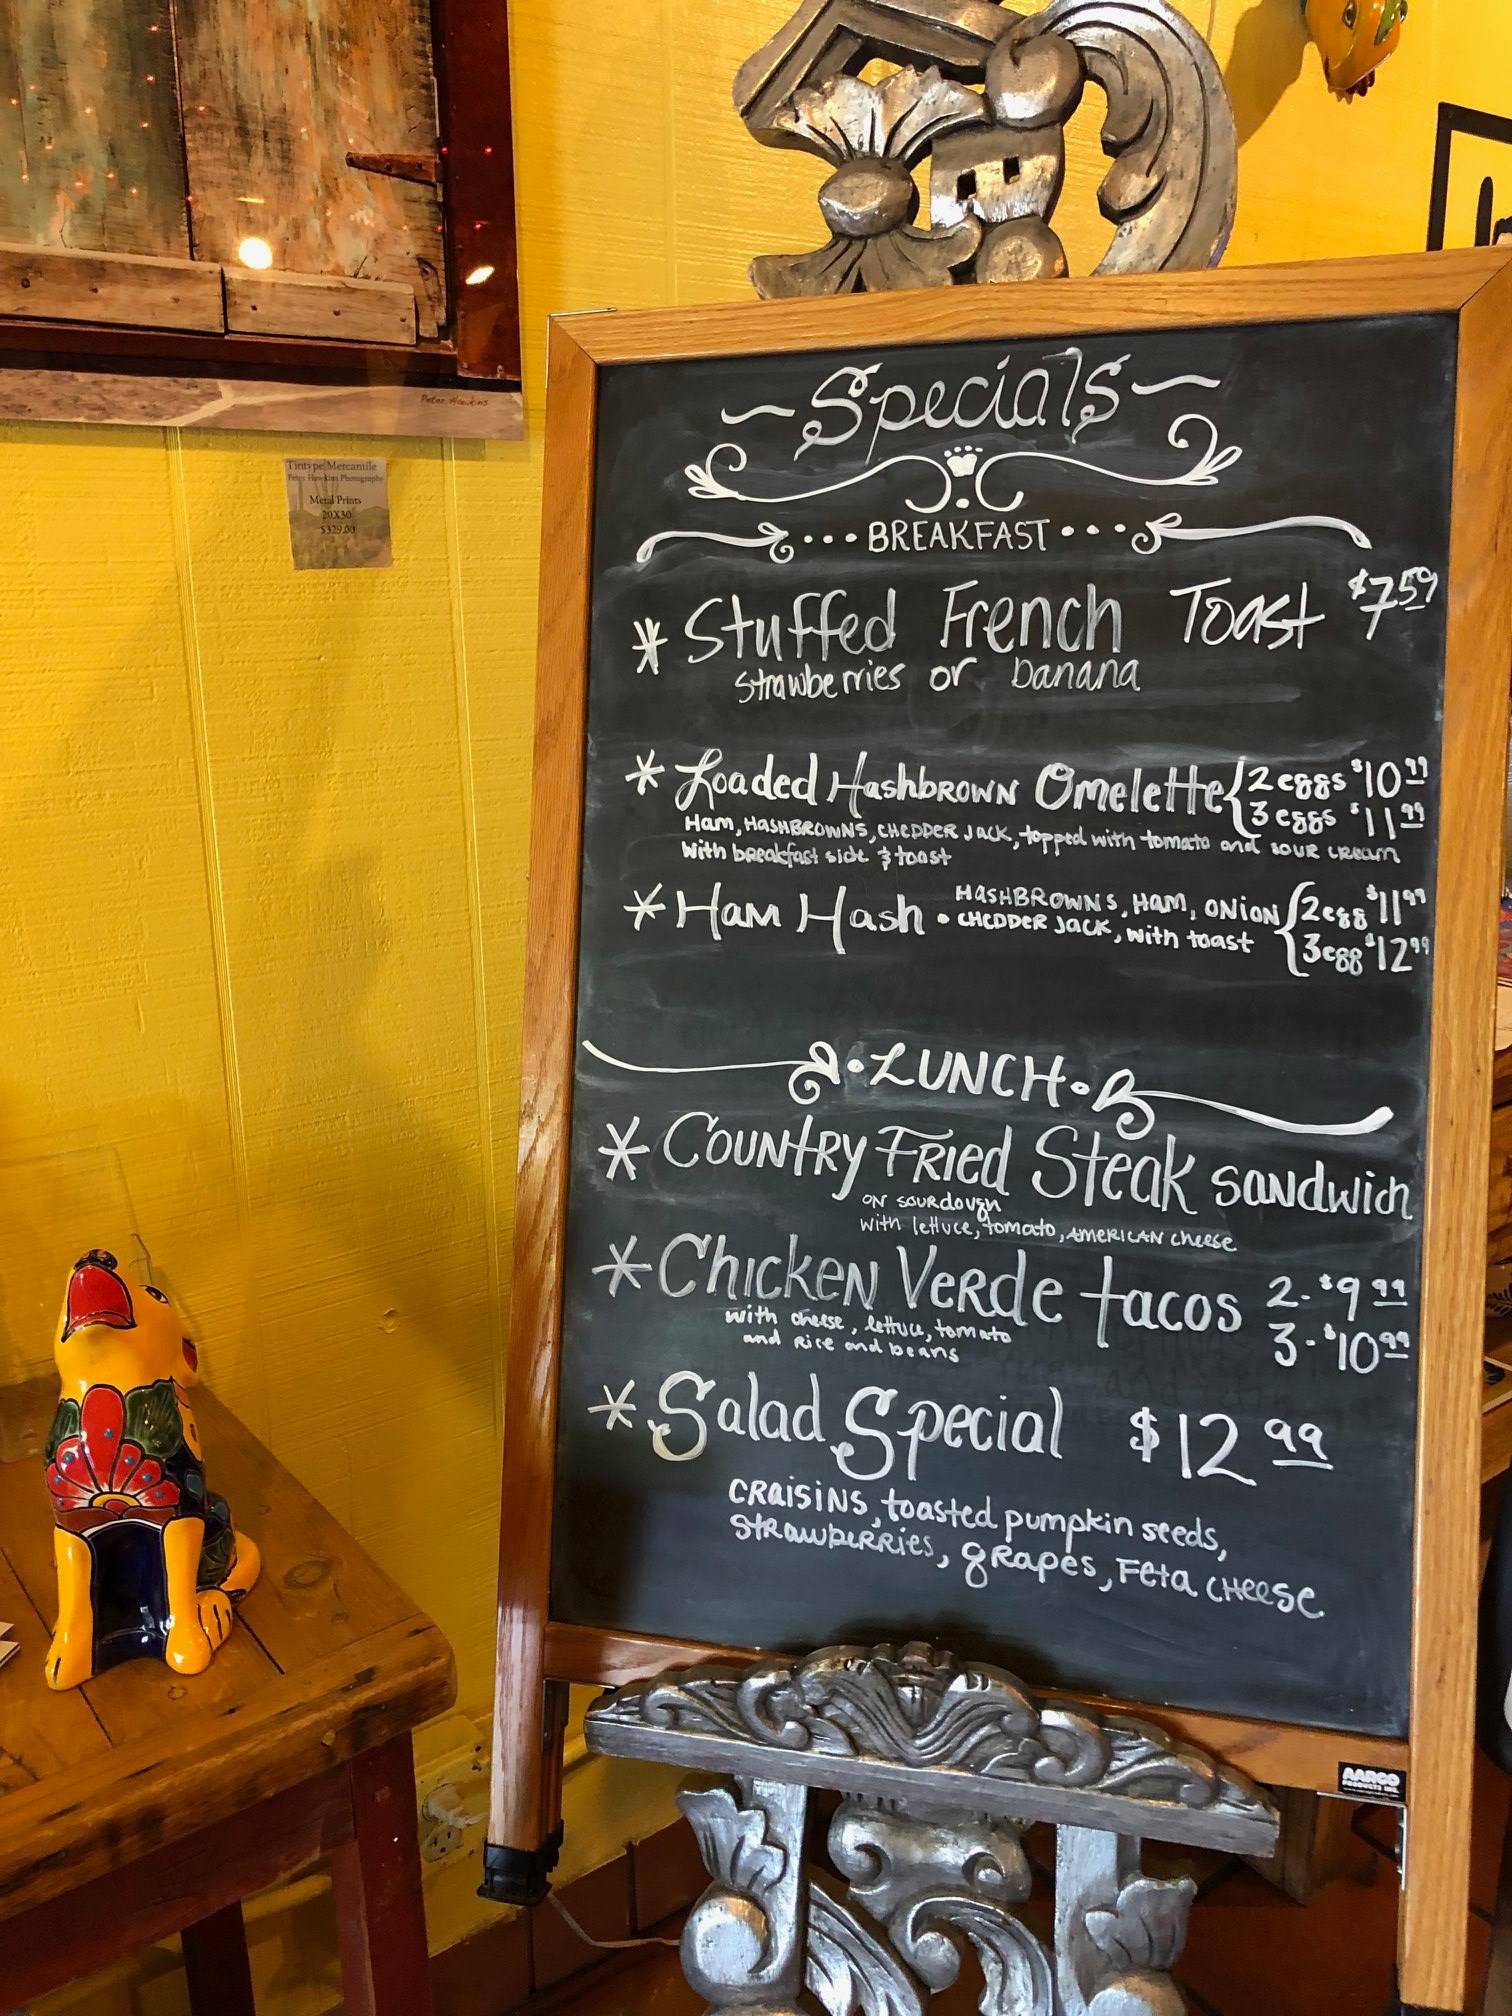 Peter Hawkins
Tintype Mercantile
Peter Hawkins Photography
Metal Prints
20X30
$329.00
~Specials~
...BREAKFAST...
* Stuffed French Toast $7.59
strawberries or banana
* Loaded HashBROWN Omelette { 2 eggs $10.99
3 eggs $11.99
Ham, HASHBROWNS, CHEDDER JACK, topped with tomato and SOUR CREAM
with breakfast side & toast
* Ham Hash • HASHBROWNS, HAM, ONION { 2 egg $11.99
CHEDDER JACK, with toast 3 egg $12.99
• LUNCH •
* COUNtRY FRied Steak saNdwich
ON SOURdough
with lettuce, tomato, AMERICAN cheese
* ChickeN VeRde tacos 2 - $9.99
3 - $10.99
with cheese, lettuce, tomato
and Rice and beans
* Salad Special $12.99
CRaisiNS, toasted pumpkin seeds,
StRawbeRRies, gRapes, Feta CHeese
AARCO
PRODUCTS INC.